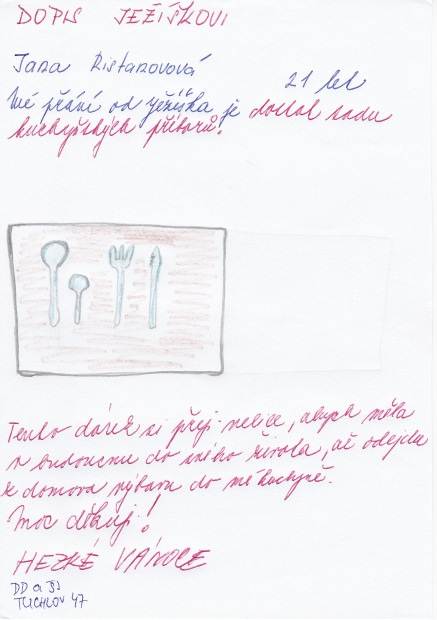 DOPIS JEŽÍŠKOVI
Jana Ristanovová 21 let
Mé přání od ježíška je dostat sadu
kuchyňských příborů.
Tento dárek si přeji nejvíce, abych měla
v budoucnu do života, až odejdu
z domova výbavu do mé kuchyně.
Moc děkuji!
HEZKÉ VÁNOCE
DD a ŠJ
TUCHLOV 47